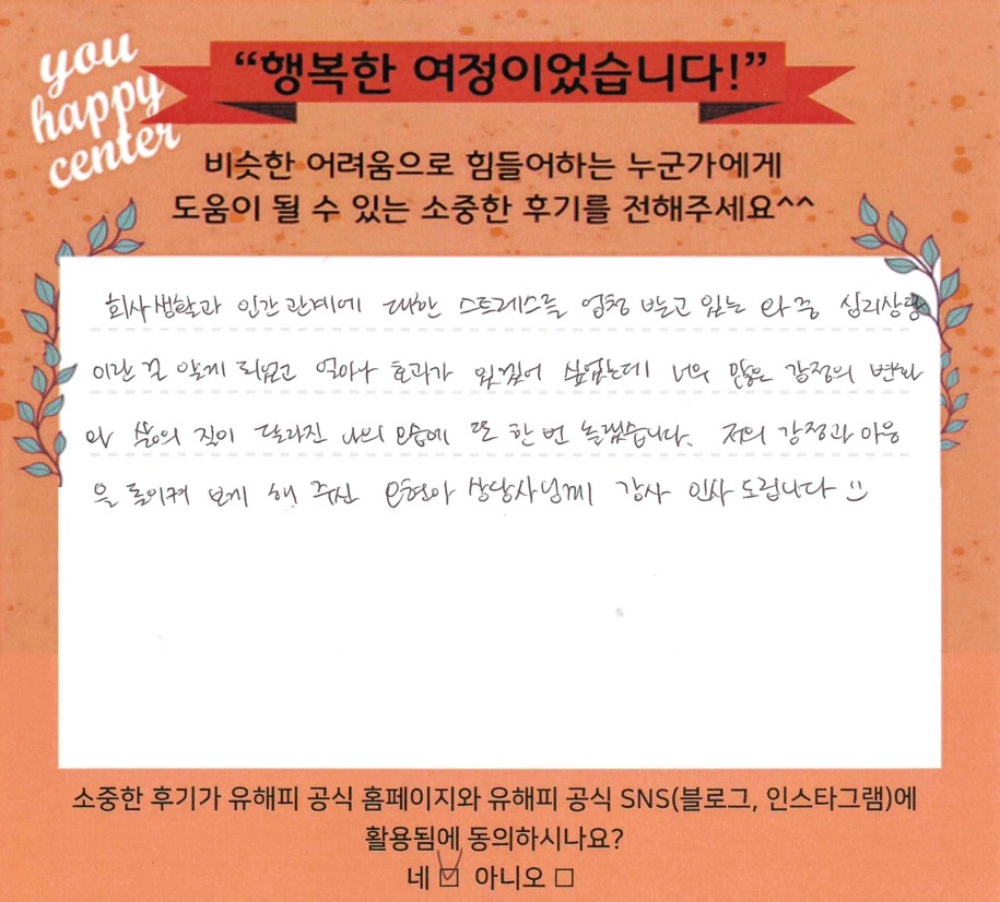 you
happy
center
“행복한 여정이었습니다!”
비슷한 어려움으로 힘들어하는 누군가에게
도움이 될 수 있는 소중한 후기를 전해주세요^^
회사생활과 인간관계에 대한 스트레스를 엄청 받고 있는 와중 심리상담
이란 걸 알게 되었고 얼마나 효과가 있겠어 싶었는데 너무 많은 감정의 변화
와 삶의 질이 달라진 나의 모습에 또 한 번 놀랬습니다. 저의 감정과 마음
을 돌이켜 보게 해 주신 상담사님께 감사 인사 드립니다 :)
소중한 후기가 유해피 공식 홈페이지와 유해피 공식 SNS(블로그, 인스타그램)에
활용됨에 동의하시나요?
네 ☑ 아니오 □